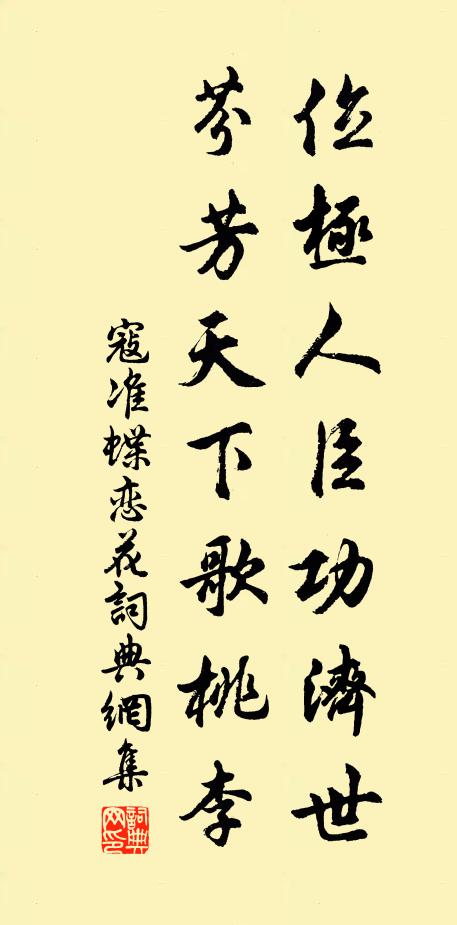 位極人臣功濟世
芬芳天下歌桃李
寇准蝶恋花詞典網集
詞典网印